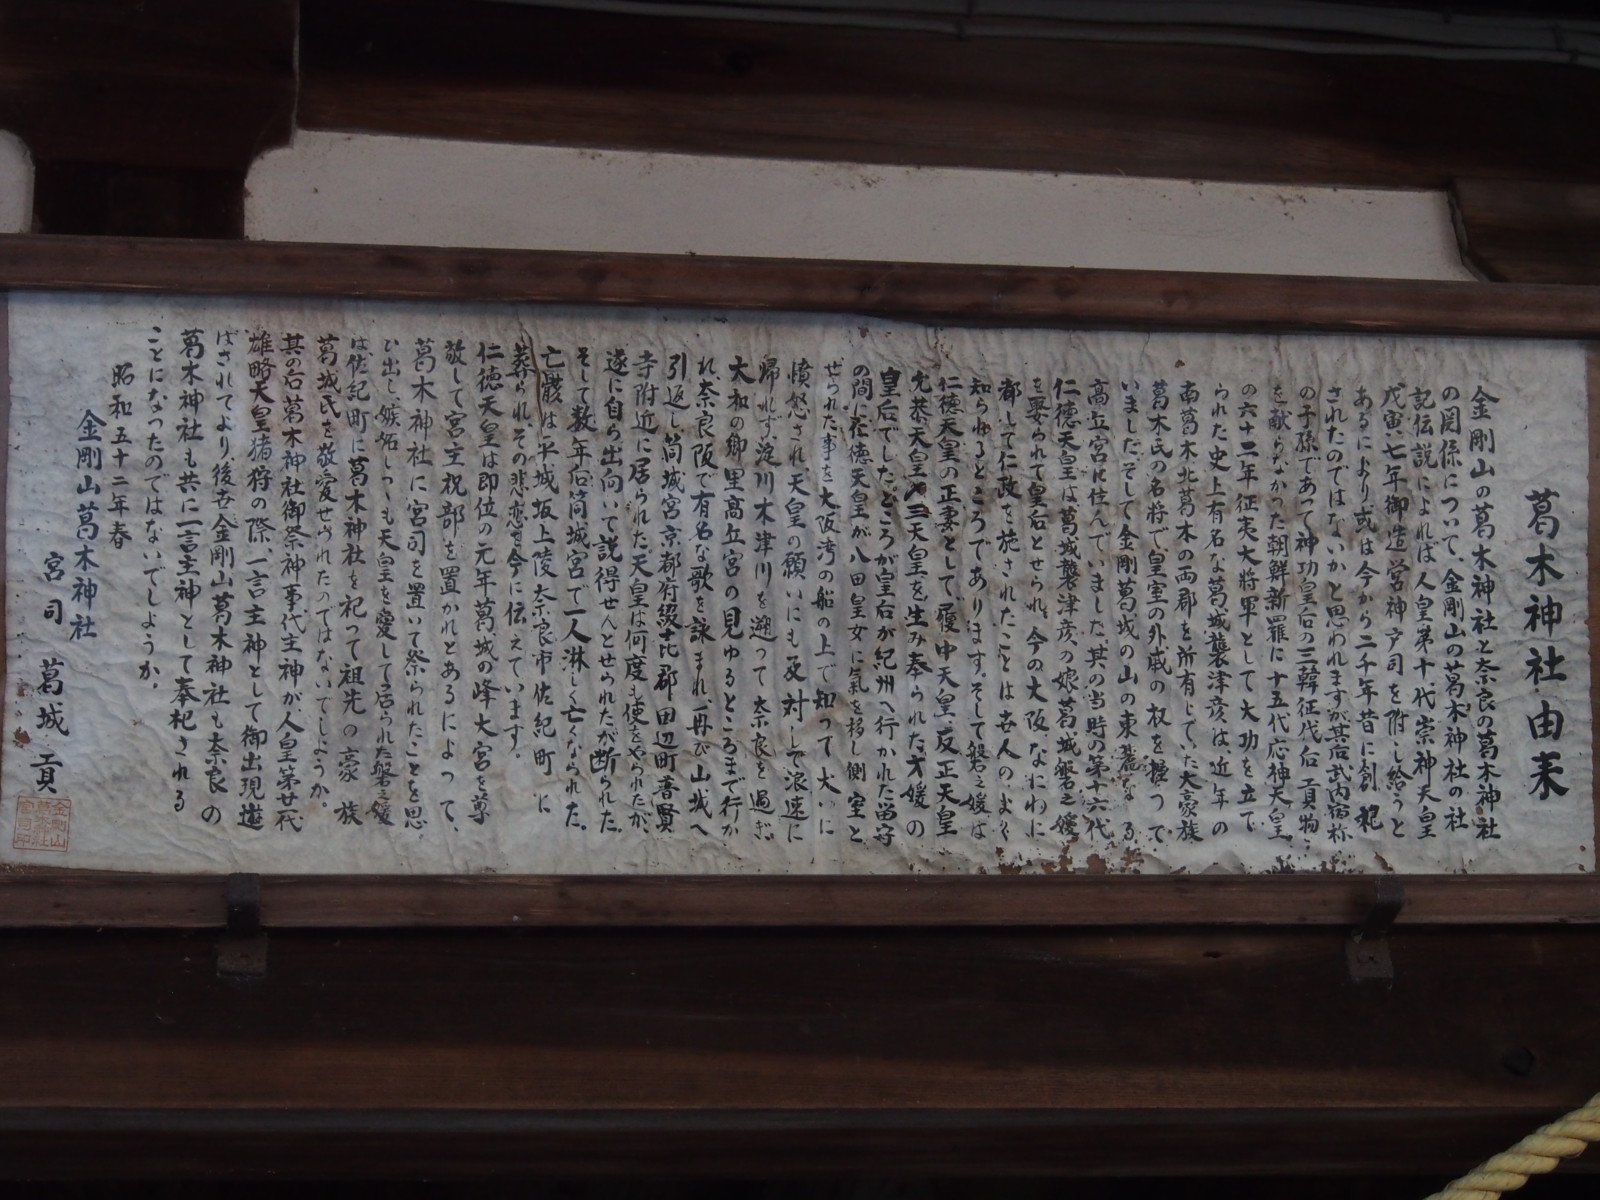 葛木神社由来
金剛山の葛木神社と奈良の葛木神社
の関係について、金剛山の葛木神社の社
記伝説によれば人皇第十代崇神天皇
戊寅、七年御造営神戸司を附し給うと
あるにより或は今から二千年昔に創祀
されたのではないかと思われますが、其后武内宿祢
の子孫であって神功皇后の三韓征伐后貢物
を献らなかった朝鮮新羅に十五代応神天皇
の六十二年征夷大将軍として大功を立て
られた史上有名な葛城襲津彦は、近年の
南葛木北葛木の両郡を所有していた大豪族
葛木氏の名将で皇室の外戚の权を握って
いました。そして金剛葛城の山の東麓なる
高丘宮に住んでいました。其の当時の第十六代
仁徳天皇は葛城襲津彦の娘葛城磐之媛
を娶られて皇后とせられ、今の大阪なにわに
都して仁政を施されたことは世人のよく
知られるところであります。そして磐之媛は
仁徳天皇の正妻として、履中天皇、反正天皇
允恭天皇の三天皇を生み奉られた才媛の
皇后でした。ところが皇后が紀州へ行かれた留守
の間に仁徳天皇が八田皇女に氣を移し側室と
せられた事を大阪湾の船の上で知って大いに
憤怒され、天皇の願いにも反対して浪速に
帰れず淀川木津川を遡って奈良を過ぎ
大和の郷里高丘宮の見ゆるところまで行か
れ、奈良阪で有名な歌を詠まれ、再び山城へ
引返し筒城宮京都府綴㐂郡田辺町普賢
寺附近に居られた。天皇は何度も使をやられたが、
遂に自ら出向いて説得せんとせられたが断られた。
そして数年后筒城宮で一人淋しく亡くなられた。
亡骸は平城坂上陵奈良市佐紀町に
葬られ、その悲恋を今に伝えています。
仁徳天皇は即位の元年葛城の峰大宮を尊
敬して宮主祝部を置かれとあるによって、
葛木神社に宮司を置いて祭られたことを思
ひ出し、嫉妬しつゝも天皇を愛して居られた磐之媛
は佐紀町に葛木神社を祀って祖先の豪族
葛城氏を敬愛せられたのではないでしょうか。
其の后葛木神社御祭神事代主神が、人皇第廿代
雄略天皇猪狩の際、一言主神として御出現遊
ばされてより、後世金剛山葛木神社も奈良の
葛木神社も共に一言主神として奉祀される
ことになったのではないでしようか。
昭和五十二年春
金剛山葛木神社
宮司 葛城貢